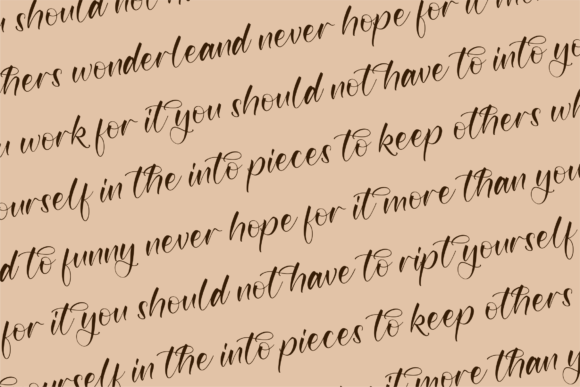 u should not
thers wonderleand never hope for it
u work for it you should not have to into yo
ourself in the into pieces to keep others wh
d to funny never hope for it more than you
for it you should not have to ript yourself
ourself in the into pieces to keep others
it more than y